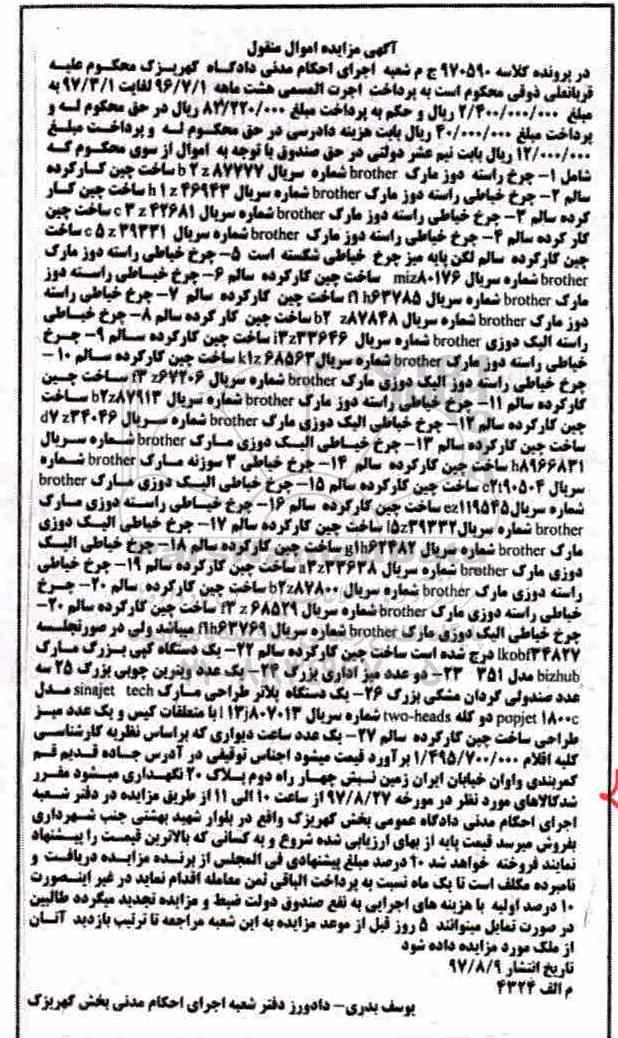 آگهی مزایده اموال منقول
در پرونده کلاسه ۹۷۰۵۹۰ ج م شعبه اجرای احکام مدنی دادگاه کهریزک محکوم علیه
قربانعلی ذوقی محکوم است به پرداخت اجرت المسمی هشت ماهه ۹۶/۷/۱ لغایت ۹۷/۳/۱ به
مبلغ ۲/۴۰۰/۰۰۰/۰۰۰ ریال و حکم به پرداخت مبلغ ۸۲/۲۲۰/۰۰۰ ریال در حق محکوم له و
پرداخت مبلغ ۴۰/۰۰۰/۰۰۰ ریال بابت هزینه دادرسی در حق محکوم له و پرداخت مبلغ
۱۲/۰۰۰/۰۰۰ ریال بابت نیم عشر دولتی در حق صندوق با توجه به اموال از سوی محکوم که
شامل ۱- چرخ راسته دوز مارک brother شماره سریال b ۲ z ۸۷۷۷۷ ساخت چین کارکرده
سالم ۲- چرخ خیاطی راسته دوز مارک brother شماره سریال h ۱ z ۴۶۹۴۳ ساخت چین کار
کرده سالم ۳- چرخ خیاطی راسته دوز مارک brother شماره سریال c ۳ z ۴۲۶۸۱ ساخت چین
کار کرده سالم ۴- چرخ خیاطی راسته دوز مارک brother شماره سریال c ۵ z ۳۹۳۳۱ ساخت
چین کارکرده سالم لکن پایه میز چرخ خیاطی شکسته است ۵- چرخ خیاطی راسته دوز مارک
brother شماره سریال miz۸۰۱۷۶ ساخت چین کارکرده سالم ۶- چرخ خیاطی راسته دوز
مارک brother شماره سریال f۱ h۶۳۷۸۵ ساخت چین کارکرده سالم ۷- چرخ خیاطی راسته
دوز مارک brother شماره سریال b۲ z۸۷۸۴۸ ساخت چین کار کرده سالم ۸- چرخ خیاطی
راسته الیک دوزی brother شماره سریال i۳z۳۳۶۴۶ ساخت چین کارکرده سالم ۹- چرخ
خیاطی راسته دوز مارک brother شماره سریال k۱z ۶۸۵۶۳ ساخت چین کارکرده سالم ۱۰-
چرخ خیاطی راسته دوز الیک دوزی مارک brother شماره سریال f۳ z۶۷۲۰۶ ساخت چین
کارکرده سالم ۱۱- چرخ خیاطی راسته دوز مارک brother شماره سریال b۲z۸۷۹۱۳ ساخت
چین کارکرده سالم ۱۲- چرخ خیاطی الیک دوزی مارک brother شماره سریال d۷ z۳۴۰۴۶
ساخت چین کارکرده سالم ۱۳- چرخ خیاطی الیک دوزی مارک brother شماره سریال
h۸۹۶۶۸۳۱ ساخت چین کارکرده سالم ۱۴- چرخ خیاطی ۳ سوزنه مارک brother شماره
سریال c۲t۹۰۵۰۴ ساخت چین کارکرده سالم ۱۵- چرخ خیاطی الیک دوزی مارک brother
شماره سریال ez۱۱۹۵۴۵ ساخت چین کارکرده سالم ۱۶- چرخ خیاطی راسته دوزی مارک
brother شماره سریال l۵z۳۹۳۳۲ ساخت چین کارکرده سالم ۱۷- چرخ خیاطی الیک دوزی
مارک brother شماره سریال g۱h۶۲۴۸۲ ساخت چین کارکرده سالم ۱۸- چرخ خیاطی الیک
دوزی مارک brother شماره سریال a۳z۳۳۶۳۸ ساخت چین کارکرده سالم ۱۹- چرخ خیاطی
راسته دوزی مارک brother شماره سریال b۲z۸۷۸۰۰ ساخت چین کارکرده سالم ۲۰- چرخ
خیاطی راسته دوزی مارک brother شماره سریال f۳ z ۶۸۵۲۹ ساخت چین کارکرده سالم ۲۰-
چرخ خیاطی الیک دوزی مارک brother شماره سریال f۱h۶۳۷۶۹ میباشد ولی در صورتجلسه
lkobf۳۴۸۲۷ درج شده است ساخت چین کارکرده سالم ۲۲- یک دستگاه کپی بزرگ مارک
bizhub مدل ۳۵۱ ۲۳- دو عدد میز اداری بزرگ ۲۴- یک عدد ویترین چوبی بزرگ ۲۵ سه
عدد صندولی گردان مشکی بزرگ ۲۶- یک دستگاه پلاتر طراحی مارک sinajet tech مدل
popjet ۱۸۰۰c دو کله two-heads شماره سریال l ۱۳j۸۰۷۰۱۳ با متعلقات کیس و یک عدد میز
طراحی ساخت چین کارکرده سالم ۲۷- یک عدد ساعت دیواری که براساس نظریه کارشناسی
کلیه اقلام ۱/۴۹۵/۷۰۰/۰۰۰ برآورد قیمت میشود اجناس توقیفی در آدرس جاده قدیم قم
کمربندی واوان خیابان ایران زمین نبش چهار راه دوم پلاک ۲۰ نگهداری میشود مقرر
شدکالاهای مورد نظر در مورخه ۹۷/۸/۲۷ از ساعت ۱۰ الی ۱۱ از طریق مزایده در دفتر شعبه
اجرای احکام مدنی دادگاه عمومی بخش کهریزک واقع در بلوار شهید بهشتی جنب شهرداری
بفروش میرسد قیمت پایه از بهای ارزیابی شده شروع و به کسانی که بالاترین قیمت را پیشنهاد
نمایند فروخته خواهد شد ۱۰ درصد مبلغ پیشنهادی فی المجلس از برنده مزایده دریافت و
نامبرده مکلف است تا یک ماه نسبت به پرداخت الباقی ثمن معامله اقدام نماید در غیر اینصورت
۱۰ درصد اولیه با هزینه های اجرایی به نفع صندوق دولت ضبط و مزایده تجدید میگردد طالبین
در صورت تمایل میتوانند ۵ روز قبل از موعد مزایده به این شعبه مراجعه تا ترتیب بازدید آنان
از ملک مورد مزایده داده شود
تاریخ انتشار ۹۷/۸/۹
م الف ۴۳۲۴
یوسف بدری- دادورز دفتر شعبه اجرای احکام مدنی بخش کهریزک